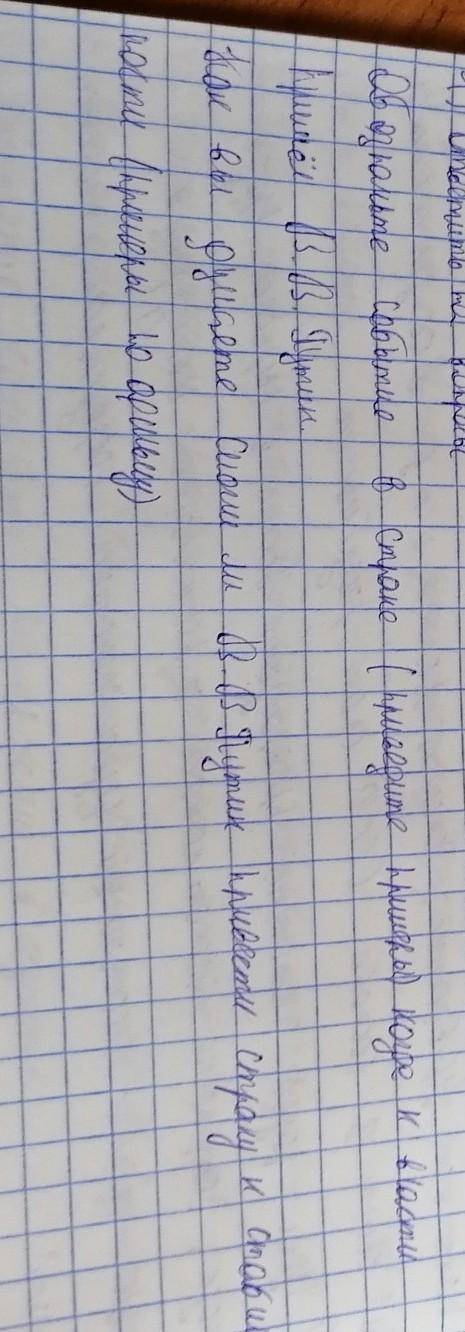 ) Ответить на вопросы
Обозначьте события в стране (приведите примеры) когда к власти
пришёл В.В. Путин.
Как вы думаете смог ли В.В Путин привести страну к стабиль
ности (примеры по абзацу)